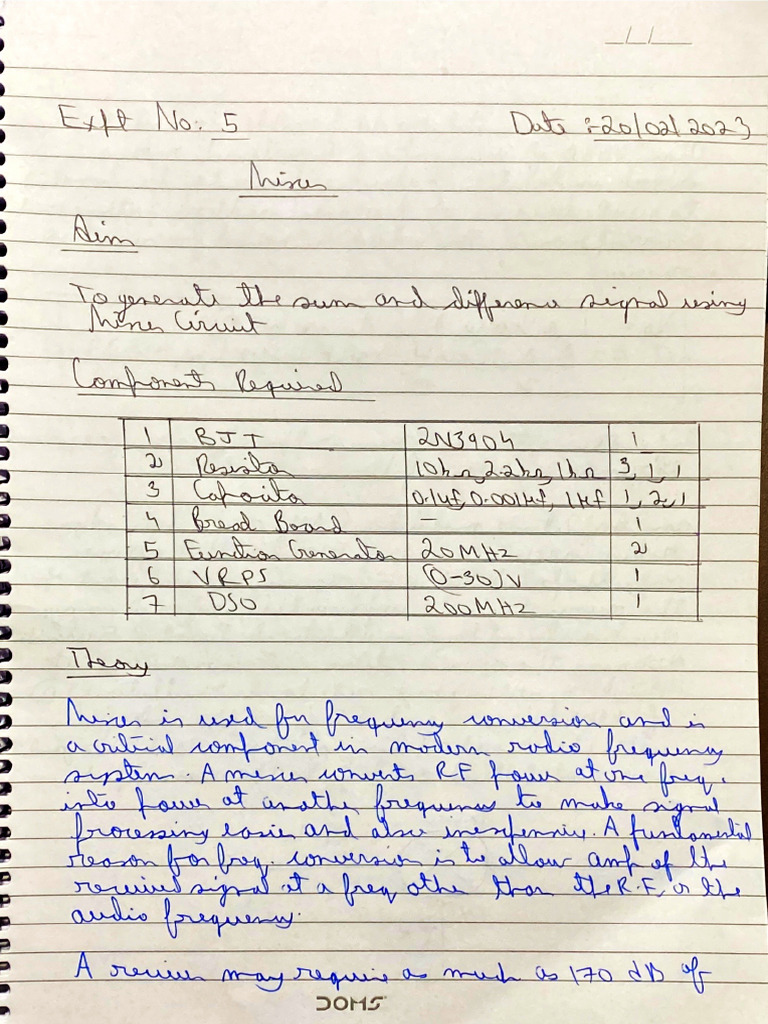 Expt No: 5 Date :- 20/02/2023
Mixer
Aim
To generate the sum and difference signal using
Mixer Circuit
Components Required
1 BJT 2N3904 1
2 Resistor 10kΩ, 2.2kΩ, 1kΩ 3, 1, 1
3 Capacitor 0.1μf, 0.001μf, 1μf 1, 2, 1
4 Bread Board — 1
5 Function Generator 20MHz 2
6 VRPS (0-30)V 1
7 DSO 200MHz 1
Theory
Mixer is used for frequency conversion and is
a critical component in modern radio frequency
system. A mixer converts RF power at one freq.
into power at another frequency to make signal
processing easier and also inexpensive. A fundamental
reason for freq. conversion is to allow amp of the
received signal at a freq other than the R.F, or the
audio frequency.
A receiver may require as much as 170 dB of
DOMS